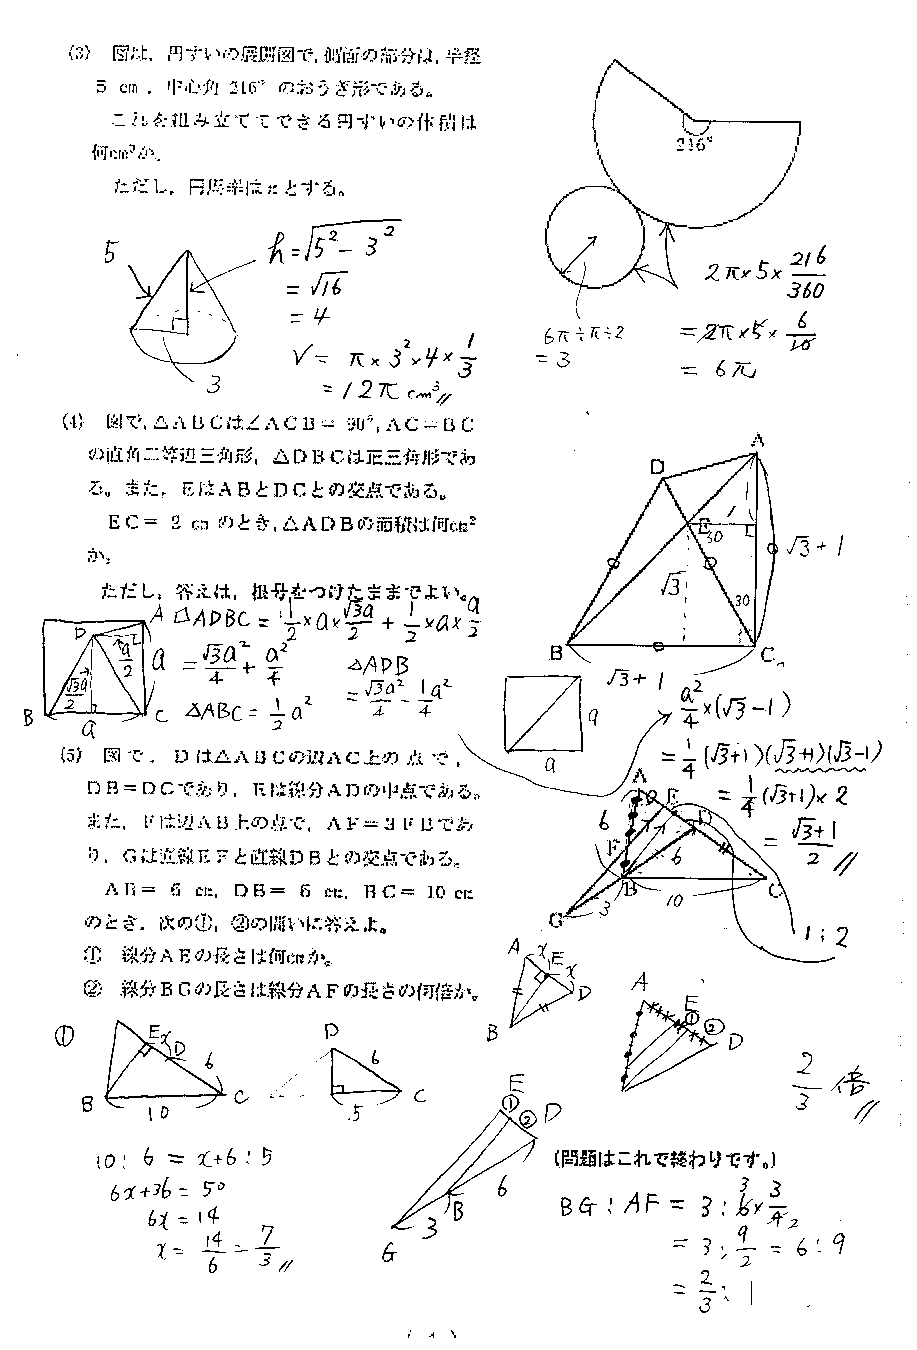 (3) 図は、円すいの展開図で、側面の部分は、半径
5 cm、中心角 216° のおうぎ形である。
これを組み立ててできる円すいの体積は
何cm³か。
ただし、円周率はπとする。
216°
5
h=√5²−3²
=√16
=4
3
V= π×3²×4×1/3
=12πcm³
6π÷π÷2
=3
2π×5×216/360
=2π×5×6/10
= 6π
(4) 図で、△ABCは∠ACB= 90°、AC=BC
の直角二等辺三角形、△DBCは正三角形であ
る。また、EはABとDCとの交点である。
EC= 2 cm のとき、△ADBの面積は何cm²
か。
ただし、答えは、根号をつけたままでよい。
A
D
E
1
30
√3+1
√3
30
B
C
√3+1
A
D
a/2
a
√3a/2
B
a
C
□ADBC = 1/2×a×√3a/2 + 1/2×a×a/2
= √3a²/4 + a²/4
△ABC= 1/2a²
△ADB
= √3a²/4 − 1/4a²
a
a
a²/4×(√3−1)
= 1/4(√3+1)(√3+1)(√3−1)
= 1/4(√3+1)×2
= √3+1/2
(5) 図で、Dは△ABCの辺AC上の点で、
DB=DCであり、Eは線分ADの中点である。
また、Fは辺AB上の点で、AF=3FBであ
り、Gは直線EFと直線DBとの交点である。
AB= 6 cm、DB= 6 cm、BC= 10 cm
のとき、次の①、②の問いに答えよ。
① 線分AEの長さは何cmか。
② 線分BGの長さは線分AFの長さの何倍か。
A
E
D
6
F
6
B
C
10
3
G
1:2
A
x
E
x
D
B
A
E
①
②
D
2/3倍
①
E
x
D
6
B
10
C
D
6
5
C
10:6 = x+6:5
6x+36= 50
6x=14
x= 14/6 = 7/3
E
①
②
D
6
B
3
G
(問題はこれで終わりです。)
BG:AF = 3:6×3/4
= 3:9/2 = 6:9
= 2/3:1